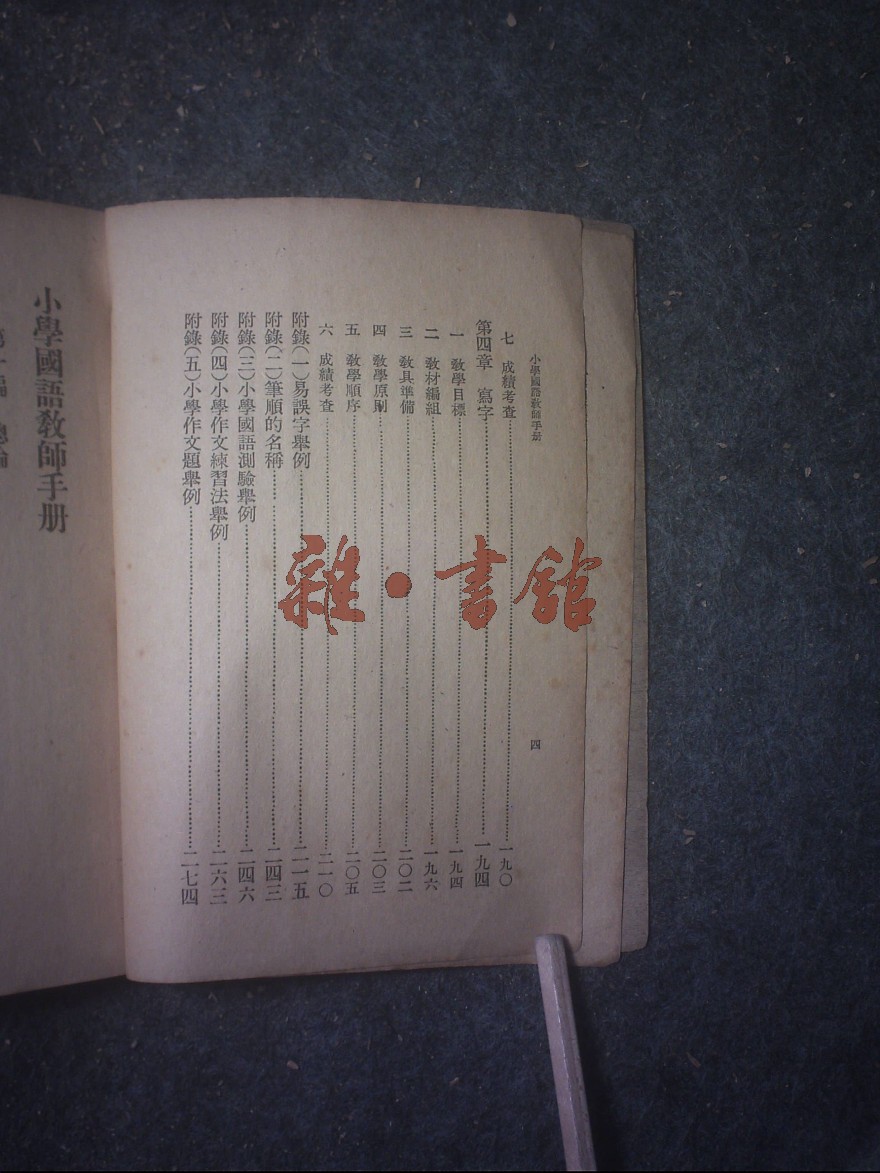 小學國語教師手册
四
七 成績考查……一九〇
第四章 寫字……一九四
一 教學目標……一九四
二 教材編組……一九六
三 教具準備……二〇二
四 教學原則……二〇三
五 教學順序……二〇五
六 成績考查……二一〇
附錄(一)易誤字舉例……二一五
附錄(二)筆順的名稱……二四三
附錄(三)小學國語測驗舉例……二四六
附錄(四)小學作文練習法舉例……二六三
附錄(五)小學作文題舉例……二七四
小學國語教師手册
總論
雜·書館